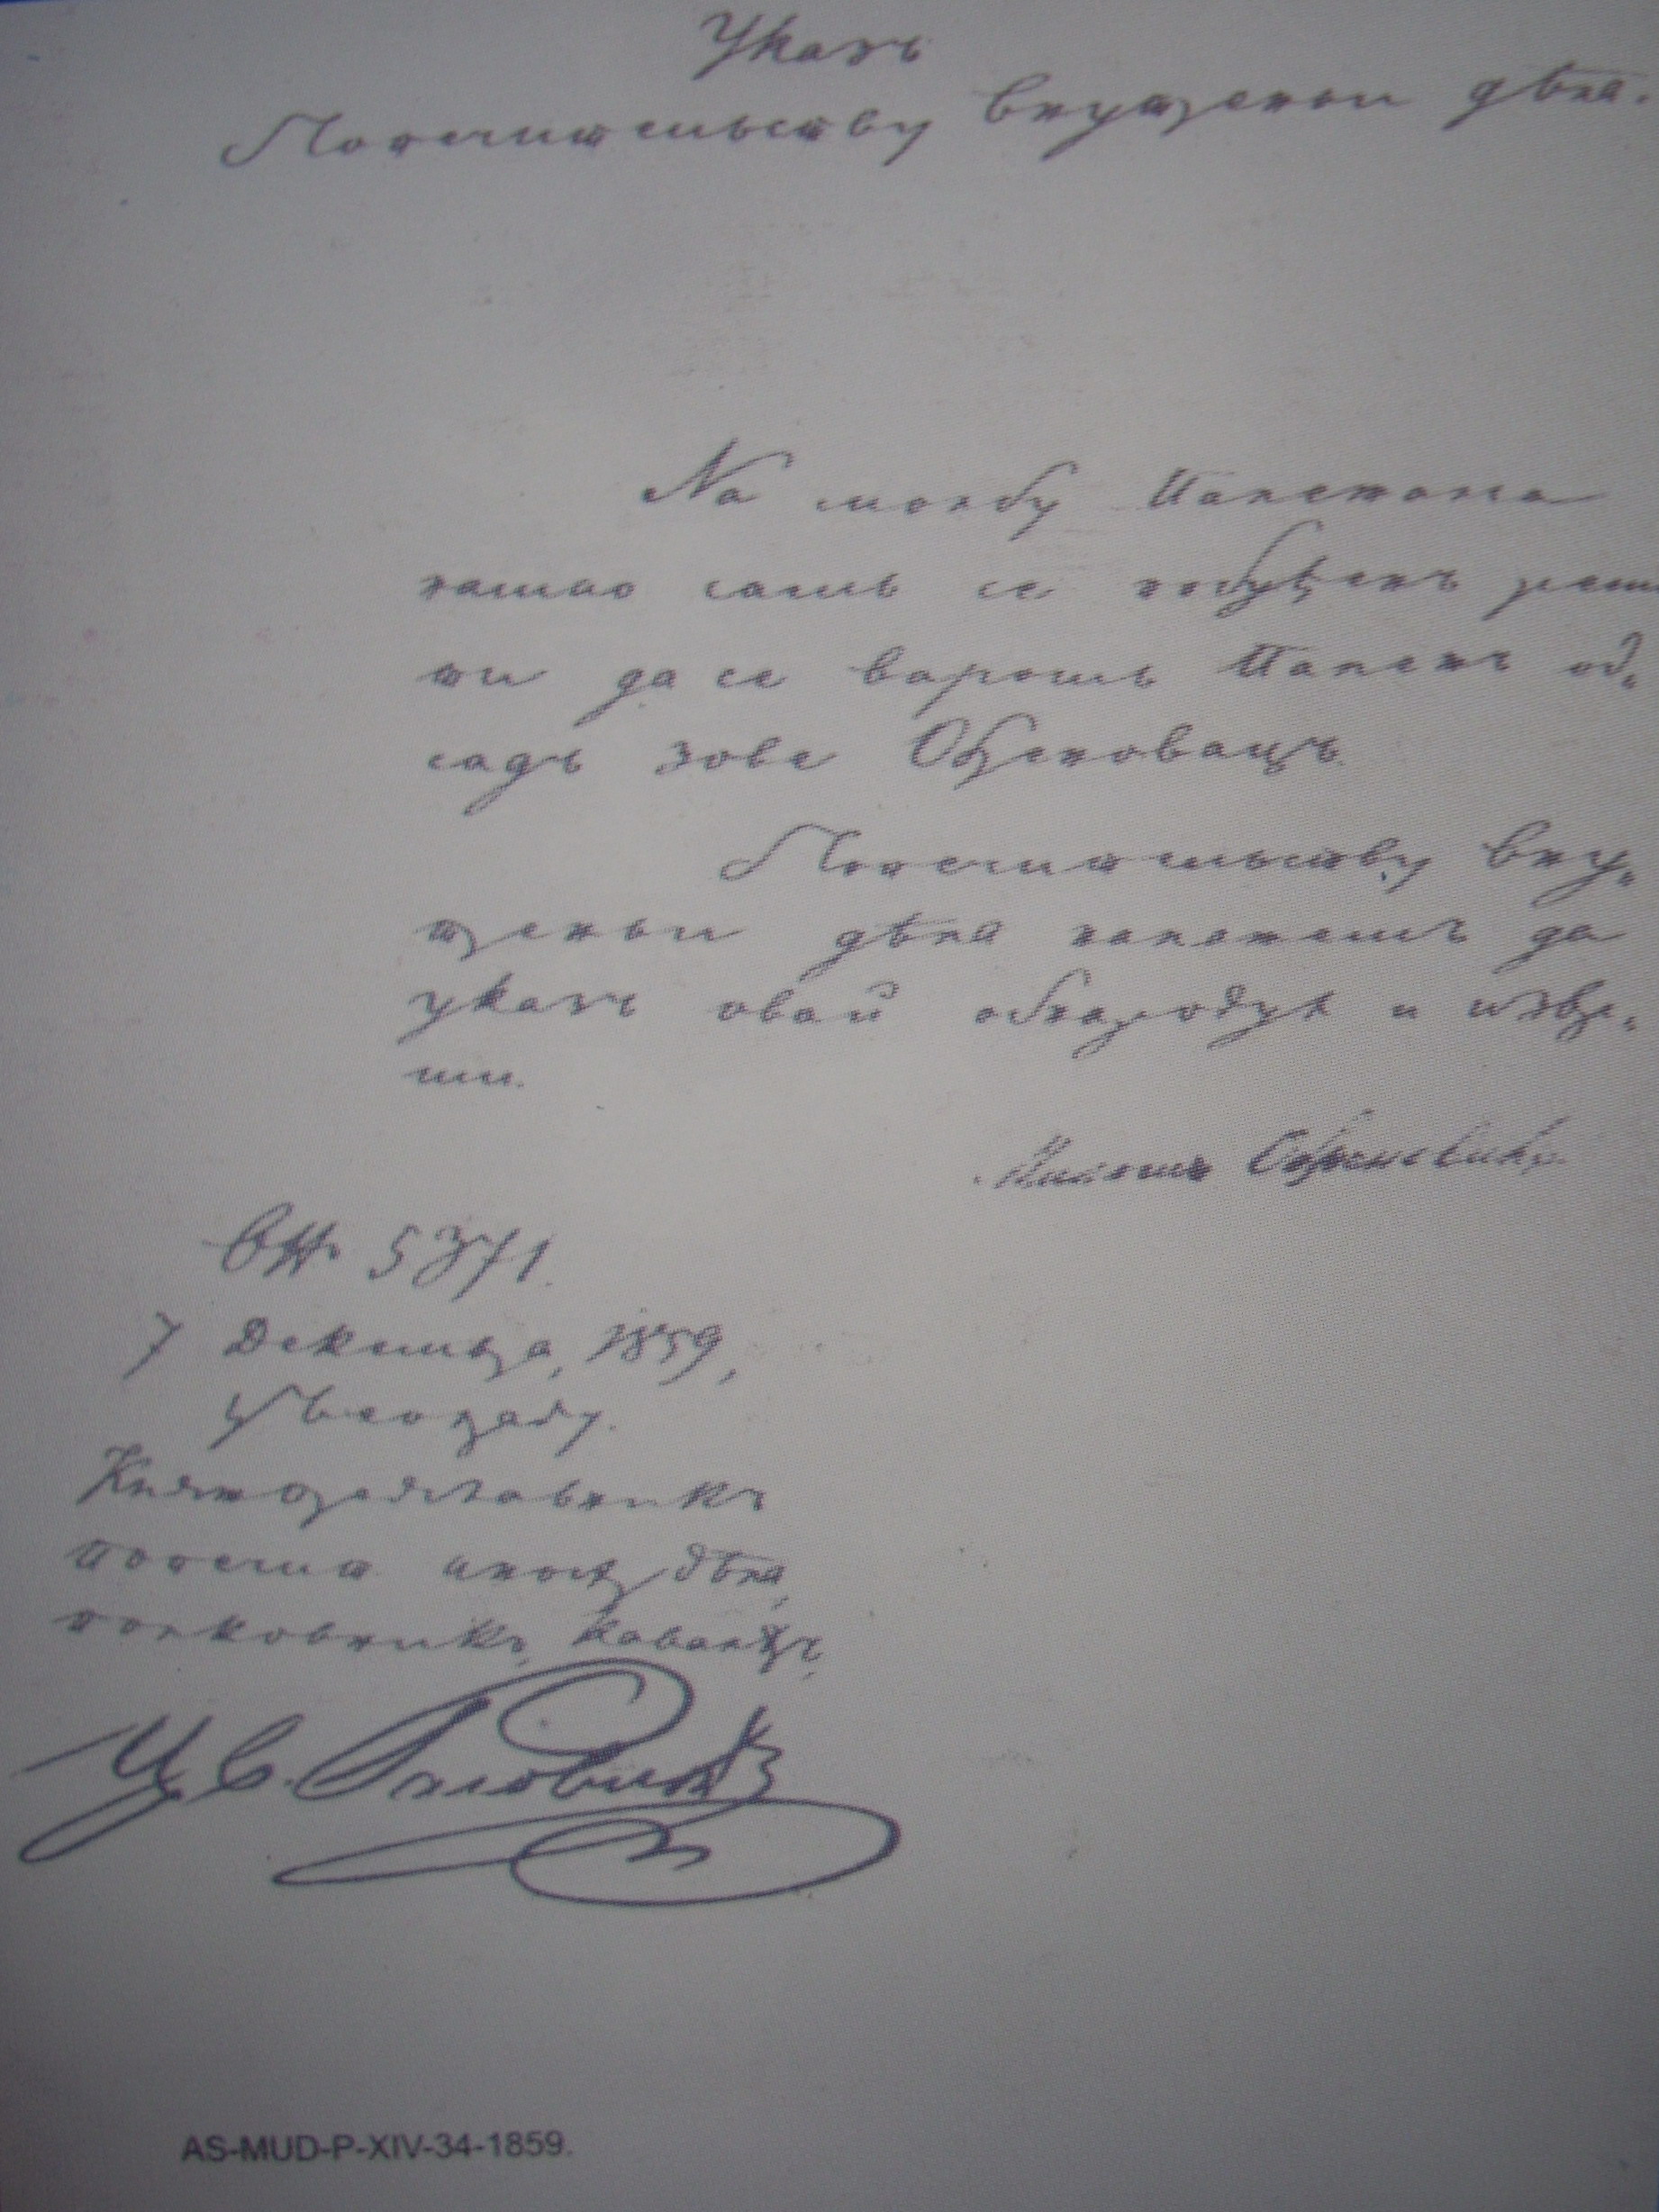 Указъ
Попечительству внутрены дѣла.
На молбу Палежана
нашао самь се побуђенъ реши
ти да се варошь Палежъ од,
садъ зове Обреновацъ.
Попечительству вну,
трены дѣла налажемъ да
указъ овай обнародує и изврши,
ши.
Милошъ Обреновићъ.
В№ 5371.
7 Декемвра, 1859,
у Београду.
Княжопредставникъ
попечит иностр дѣла,
полковникъ, кавалѣръ,
Цв. Раіовићъ
AS-MUD-P-XIV-34-1859.